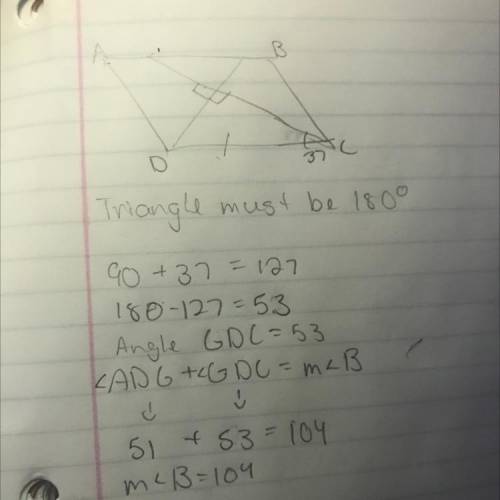 A B
D 37 C
Triangle must be 180°
90 + 37 = 127
180 - 127 = 53
Angle GDC = 53
<ADG + <GDC = m<B
↓ ↓
51 + 53 = 104
m<B = 104